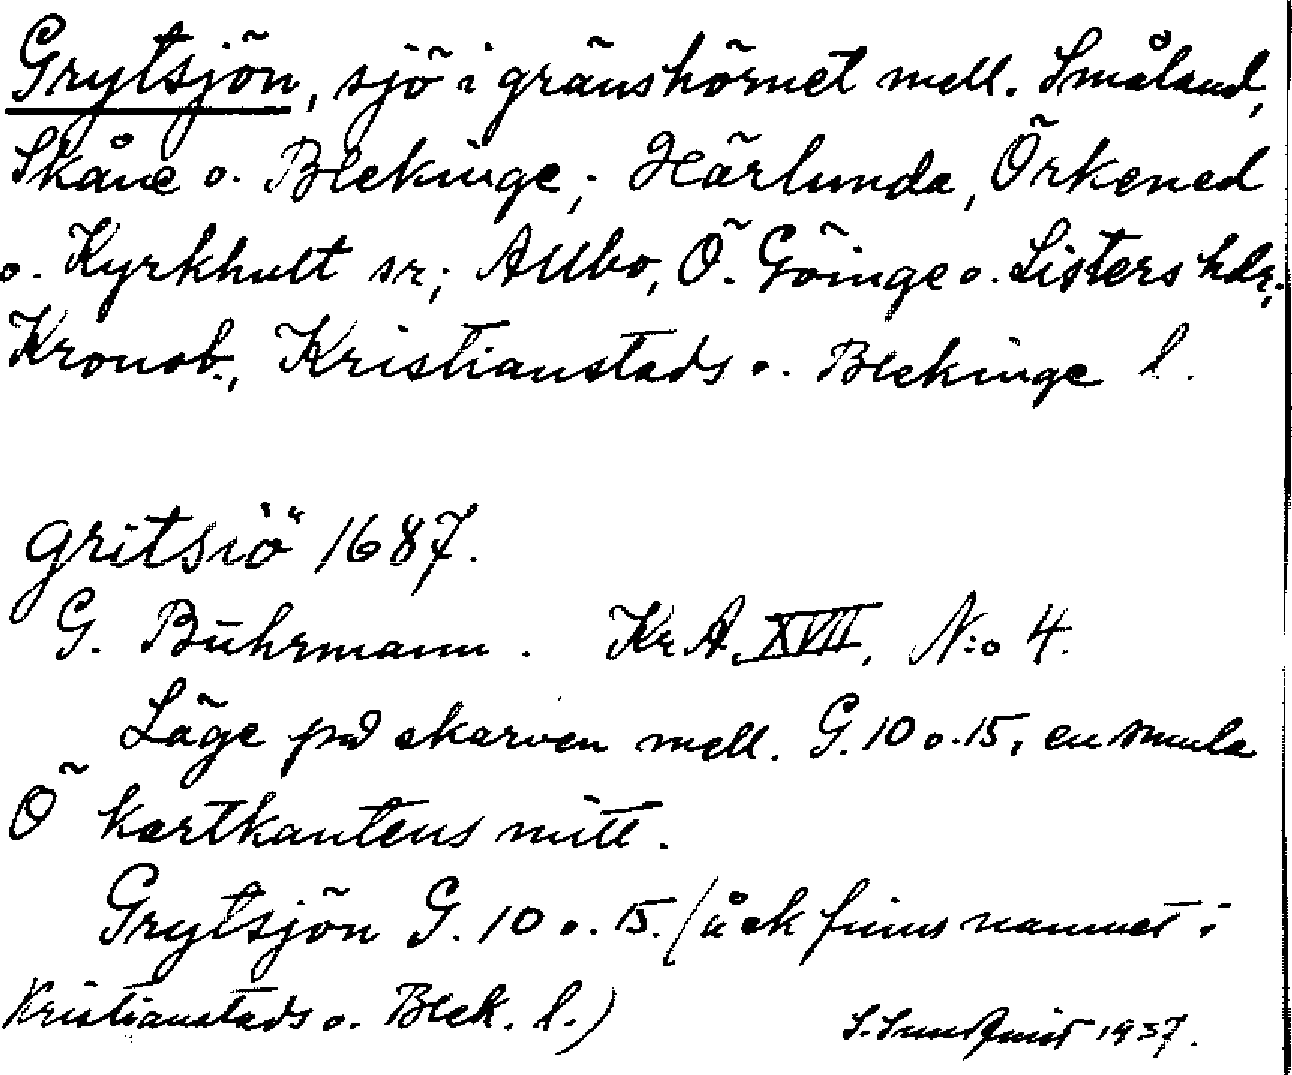 Grytsjön, sjö i gränshörnet mell. Småland,
Skåne o. Blekinge; Härlunda, Örkened
o. Kyrkhult sr; Allbo, Ö. Göinge o. Listers hdr,
Kronob., Kristianstads o. Blekinge l.
gritsiö 1687.
G. Buhrmann. KrA. XVII, N:o 4.
Läge på skarven mell. G. 10 o. 15, en smula
Ö kartkantens mitt.
Grytsjön G. 10 o. 15. (å ek finns namnet i
Kristianstads o. Blek. l.)
S. Sundquist 1937.